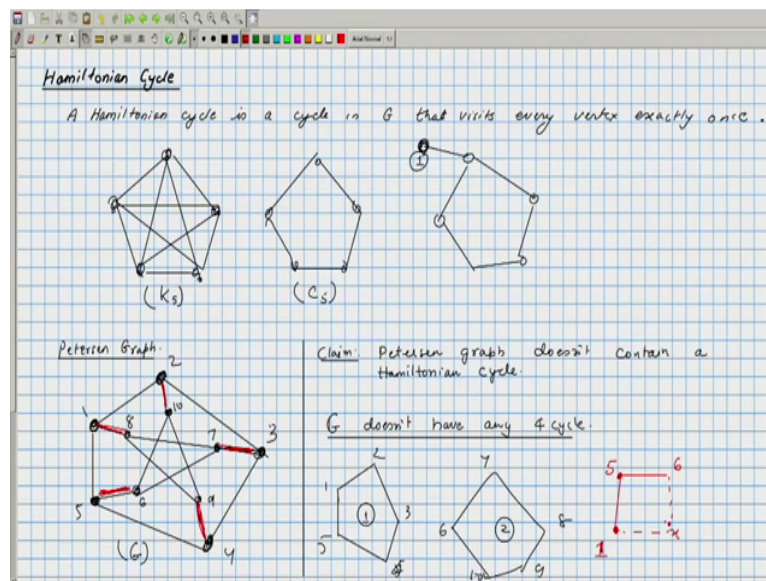 Hamiltonian Cycle
A Hamiltonian cycle is a cycle in G that visits every vertex exactly once.
1
(K5)
(C5)
Petersen Graph.
2
10
1
8
7
3
6
9
5
4
(G)
Claim: Petersen graph doesn't contain a
Hamiltonian Cycle.
G doesn't have any 4 cycle.
2
1
1
3
5
7
6
2
8
10
9
5
6
1
x